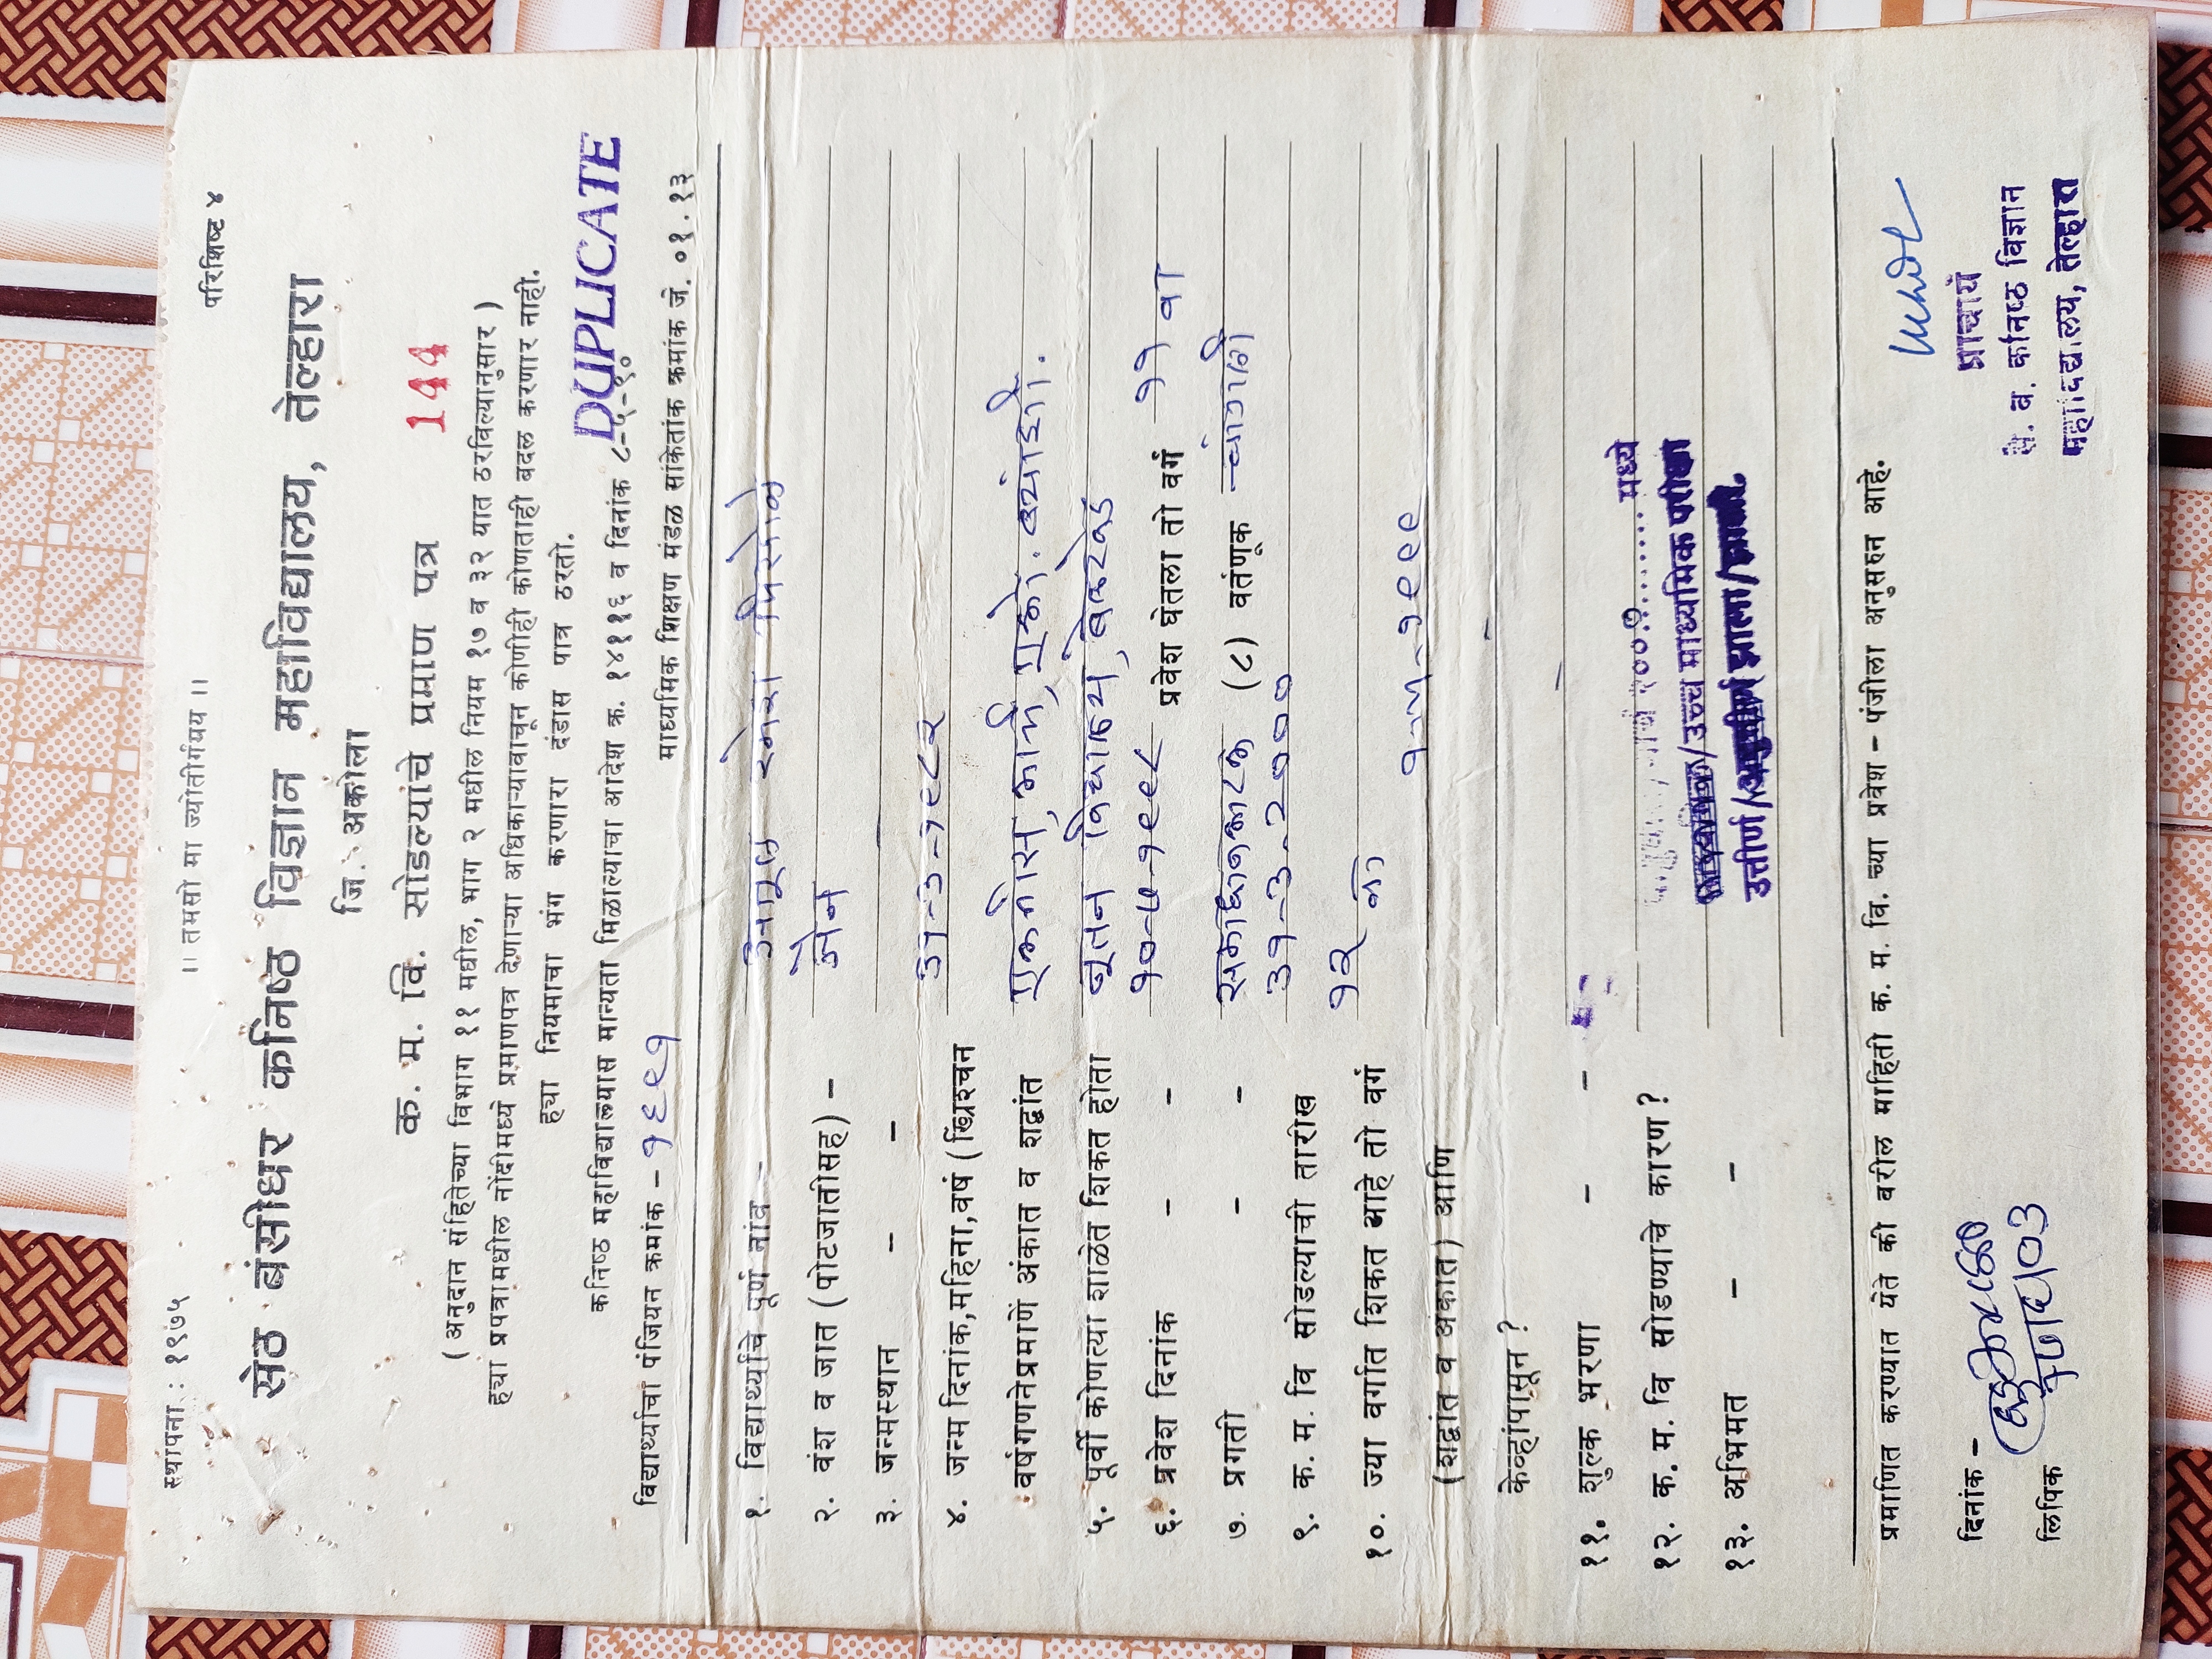 स्थापना : १९७५
।। तमसो मा ज्योतीर्गमय ।।
परिशिष्ट ४
सेठ बंसीधर कनिष्ठ विज्ञान महाविद्यालय, तेल्हारा
जि. अकोला
क. म. वि. सोडल्याचे प्रमाण पत्र 144
( अनुदान संहितेच्या विभाग ११ मधील, भाग २ मधील नियम १७ व ३२ यात ठरविल्यानुसार )
ह्या प्रपत्रामधील नोंदीमध्ये प्रमाणपत्र देणाऱ्या अधिकाऱ्यावाचून कोणीही कोणताही बदल करणार नाही.
ह्या नियमाचा भंग करणारा दंडास पात्र ठरतो.
DUPLICATE
कनिष्ठ महाविद्यालयास मान्यता मिळाल्याचा आदेश क्र. १४११६ व दिनांक ८-५-९०
विद्यार्थ्याचा पंजियन क्रमांक - १६९१ माध्यमिक शिक्षण मंडळ सांकेतांक क्रमांक जे. ०१.१३
१. विद्यार्थ्याचे पूर्ण नांव -
२. वंश व जात (पोटजातीसह) - जैन
३. जन्मस्थान - - -
४. जन्म दिनांक, महिना, वर्ष (ख्रिश्चन ३१-३-१९८२
वर्षगणनेप्रमाणे अंकात व शद्वांत एकतीस, मार्च, एको. ब्यांशी.
५. पूर्वी कोणत्या शाळेत शिकत होता नूतन विद्यालय, सेलू
६. प्रवेश दिनांक - - १०-७-१९९८ प्रवेश घेतला तो वर्ग ११ वा
७. प्रगती - - समाधानकारक (८) वर्तणूक चांगली
९. क. म. वि सोडल्याची तारीख ३१-३-२०००
१०. ज्या वर्गात शिकत आहे तो वर्ग १२ वी
(शद्वांत व अंकात) आणि १-५-१९९९
केव्हांपासून ? -
११. शुल्क भरणा - - -
१२. क. म. वि सोडण्याचे कारण ? २००१ मध्ये
१३. अभिमत - - उच्च माध्यमिक परीक्षा
उत्तीर्ण
प्रमाणित करण्यात येते की वरील माहिती क. म. वि. च्या प्रवेश - पंजीला अनुसरुन आहे.
दिनांक -
लिपिक
प्राचार्य
से. ब. कनिष्ठ विज्ञान
महाविद्यालय, तेल्हारा